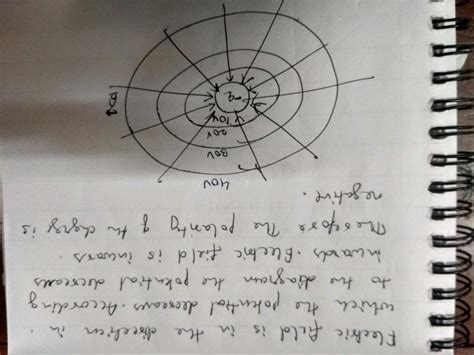 Electric field is in the direction in
which the potential decreases. According
to the diagram the potential decreases
inwards. Electric field is inwars.
Therefore the polarity of the charge is
negative.
40V
30V
20V
10V
-q